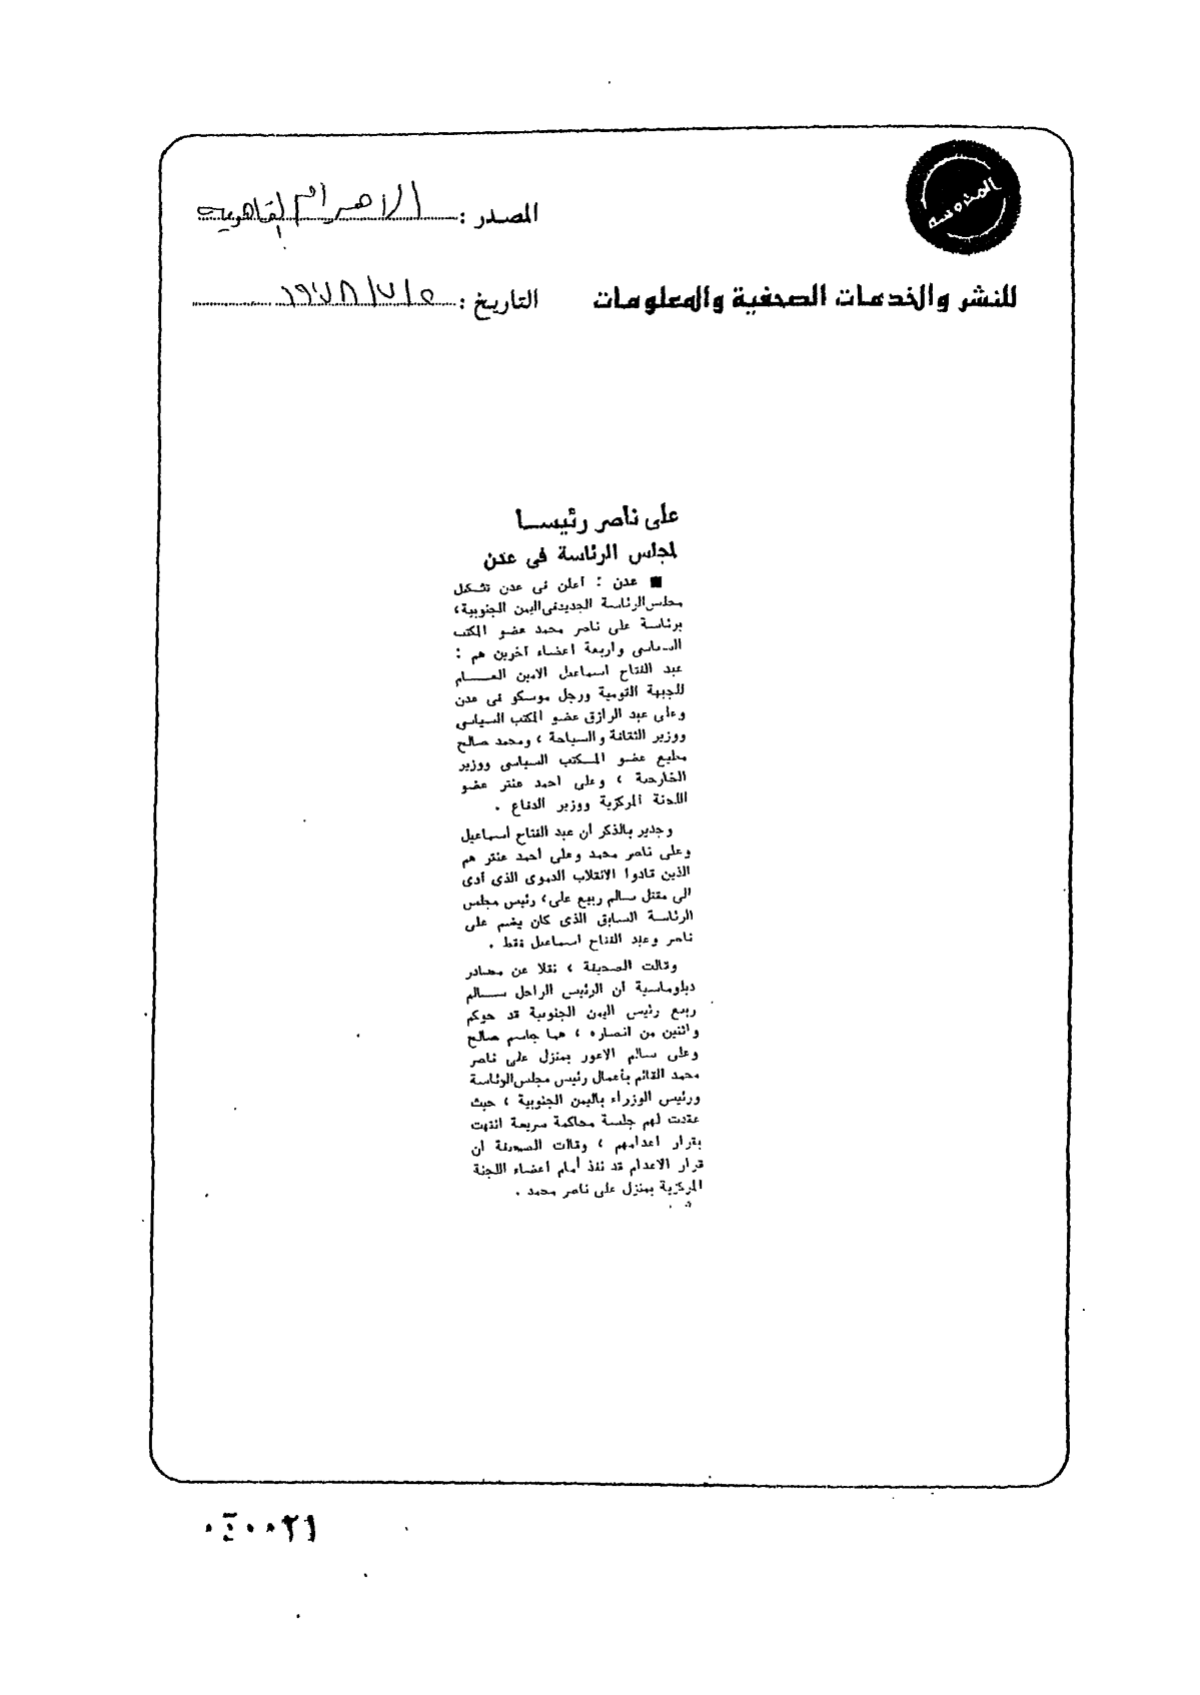 المحروسة
المصدر : الاهرام القاهرية
للنشر والخدمات الصحفية والمعلومات
التاريخ : ١٩٧٨/٧/٥
على ناصر رئيسا
لمجلس الرئاسة فى عدن
■ عدن : أعلن فى عدن تشكيل
مجلس الرئاسة الجديد فى اليمن الجنوبية ،
برئاسة على ناصر محمد عضو المكتب
السياسى وأربعة أعضاء آخرين هم :
عبد الفتاح اسماعيل الامين العـــام
للجبهة القومية ورجل موسكو فى عدن
وعلى عبد الرازق عضو المكتب السياسى
ووزير الثقافة والسياحة ، ومحمد صالح
مطيع عضو المـكتب السياسى ووزير
الخارجية ، وعلى احمد عنتر عضو
اللجنة المركزية ووزير الدفاع .
وجدير بالذكر أن عبد الفتاح أسماعيل
وعلى ناصر محمد وعلى أحمد عنتر هم
الذين قادوا الانقلاب الدموى الذى أدى
الى مقتل سالم ربيع على ، رئيس مجلس
الرئاسة السابق الذى كان يضم على
ناصر وعبد الفتاح اسماعيل فقط .
وقالت الصحيفة ، نقلا عن مصادر
دبلوماسية أن الرئيس الراحل ســـالم
ربيع رئيس اليمن الجنوبية قد حوكم
واثنين من أنصاره ، هما جاسم صالح
وعلى سالم الاعور بمنزل على ناصر
محمد القائم بأعمال رئيس مجلس الرئاسة
ورئيس الوزراء باليمن الجنوبية ، حيث
عقدت لهم جلسة محاكمة سريعة انتهت
بقرار اعدامهم ، وقالت الصحيفة أن
قرار الاعدام قد نفذ أمام أعضاء اللجنة
المركزية بمنزل على ناصر محمد .
٠٤٠٠٢٦